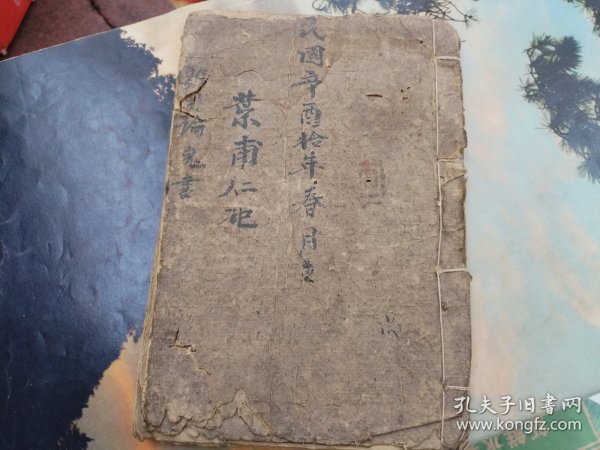 民國辛酉拾年春月立
葉甫仁記
論鬼書
孔夫子旧书网
www.kongfz.com